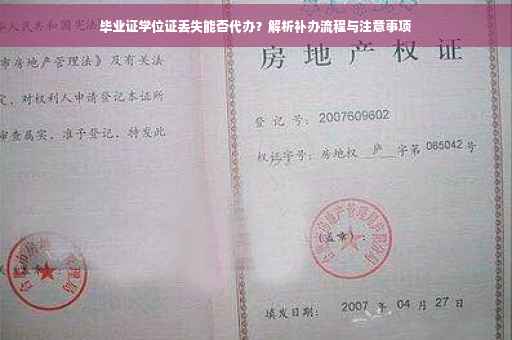 毕业证学位证丢失能否代办？解析补办流程与注意事项
人民共和国宪法
市房地产管理法》及有关法
定，对权利人申请登记本证所
审查属实，准予登记，特发此
房地产权证
登记号：2007609602
权证字号：房地权 庐 字第 085042 号
(盖章)：
填发日期：2007 年 04 月 27 日